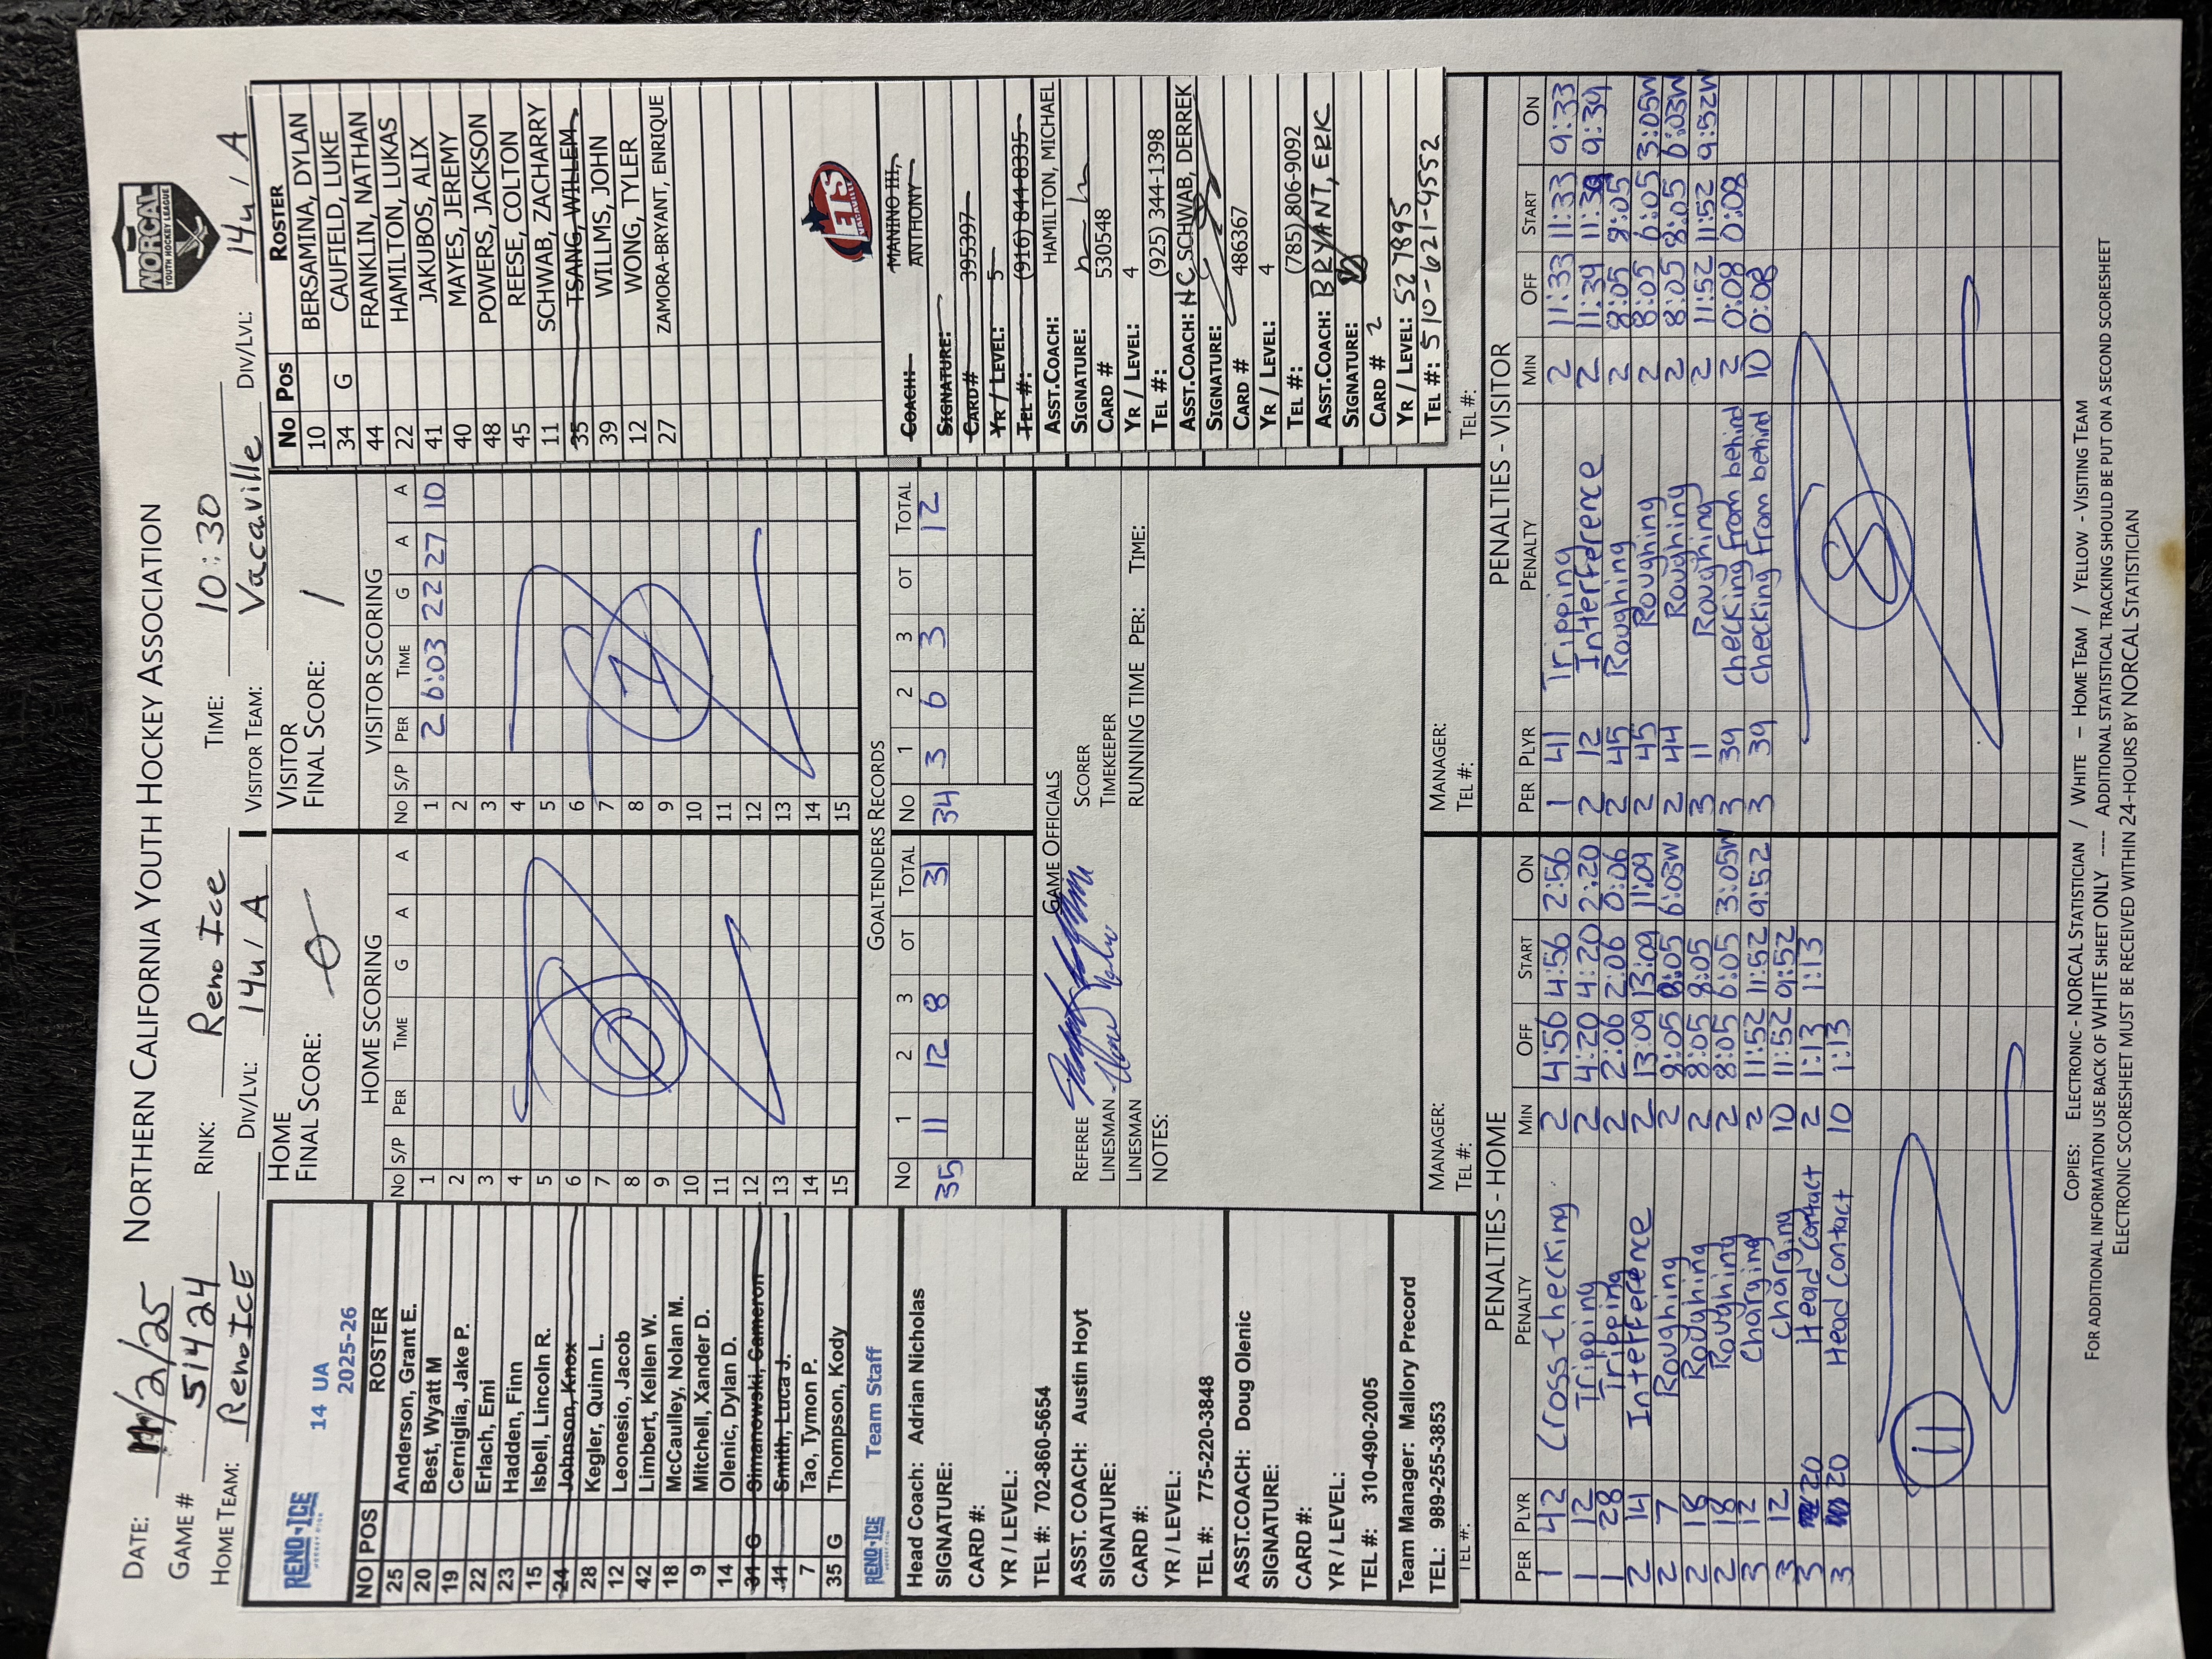 NORTHERN CALIFORNIA YOUTH HOCKEY ASSOCIATION
NORCAL
YOUTH HOCKEY LEAGUE
DATE: 11/2/25
GAME # 51424 RINK: Reno Ice TIME: 10:30
HOME TEAM: Reno ICE DIV/LVL: 14u / A VISITOR TEAM: Vacaville DIV/LVL: 14u / A
RENO-ICE 14 UA
2025-26
NO POS ROSTER
25 Anderson, Grant E.
20 Best, Wyatt M
19 Cerniglia, Jake P.
22 Erlach, Emi
23 Hadden, Finn
15 Isbell, Lincoln R.
24 Johnson, Knox
28 Kegler, Quinn L.
12 Leonesio, Jacob
42 Limbert, Kellen W.
18 McCaulley, Nolan M.
9 Mitchell, Xander D.
14 Olenic, Dylan D.
31 G Simanowski, Cameron
11 Smith, Luca J.
7 Tao, Tymon P.
35 G Thompson, Kody
RENO-ICE Team Staff
Head Coach: Adrian Nicholas
SIGNATURE:
CARD #:
YR / LEVEL:
TEL #: 702-860-5654
ASST. COACH: Austin Hoyt
SIGNATURE:
CARD #:
YR / LEVEL:
TEL #: 775-220-3848
ASST.COACH: Doug Olenic
SIGNATURE:
CARD #:
YR / LEVEL:
TEL #: 310-490-2005
Team Manager: Mallory Precord
TEL: 989-255-3853
TEL #:
HOME
FINAL SCORE: 0
VISITOR
FINAL SCORE: 1
HOME SCORING
NO S/P PER TIME G A A
1
2
3
4
5
6
7
8
9
10
11
12
13
14
15
0
VISITOR SCORING
NO S/P PER TIME G A A
1 2 6:03 22 27 10
2
3
4
5
6
7
8
9
10
11
12
13
14
15
1
GOALTENDERS RECORDS
NO 1 2 3 OT TOTAL NO 1 2 3 OT TOTAL
35 11 12 8 31 34 3 6 3 12
GAME OFFICIALS
REFEREE SCORER
LINESMAN TIMEKEEPER
LINESMAN RUNNING TIME PER: TIME:
NOTES:
MANAGER: MANAGER:
TEL #: TEL #:
No Pos Roster
10 BERSAMINA, DYLAN
34 G CAUFIELD, LUKE
44 FRANKLIN, NATHAN
22 HAMILTON, LUKAS
41 JAKUBOS, ALIX
40 MAYES, JEREMY
48 POWERS, JACKSON
45 REESE, COLTON
11 SCHWAB, ZACHARRY
35 TSANG, WILLEM
39 WILLMS, JOHN
12 WONG, TYLER
27 ZAMORA-BRYANT, ENRIQUE
JETS
COACH: MANINO III, ANTHONY
SIGNATURE:
CARD# 395397
YR / LEVEL: 5
TEL #: (916) 844-8335
ASST.COACH: HAMILTON, MICHAEL
SIGNATURE:
CARD # 530548
YR / LEVEL: 4
TEL #: (925) 344-1398
ASST.COACH: HC SCHWAB, DERREK
SIGNATURE:
CARD # 486367
YR / LEVEL: 4
TEL #: (785) 806-9092
ASST.COACH: BRYANT, ERIK
SIGNATURE:
CARD # 2
YR / LEVEL: 527895
TEL #: 510-621-4552
TEL #:
PENALTIES - HOME
PER PLYR PENALTY MIN OFF START ON
1 42 Cross-checking 2 4:56 4:56 2:56
1 12 Tripping 2 4:20 4:20 2:20
1 28 Tripping 2 2:06 2:06 0:06
2 14 Interference 2 13:09 13:09 11:09
2 7 Roughing 2 8:05 8:05 6:03W
2 18 Roughing 2 8:05 8:05
2 18 Roughing 2 8:05 6:05 3:05W
3 12 Charging 2 11:52 11:52 9:52
3 12 Charging 10 11:52 9:52
3 20 Head Contact 2 1:13 1:13
3 20 Head Contact 10 1:13
11
PENALTIES - VISITOR
PER PLYR PENALTY MIN OFF START ON
1 41 Tripping 2 11:33 11:33 9:33
2 12 Interference 2 11:39 11:39 9:39
2 45 Roughing 2 8:05 8:05
2 45 Roughing 2 8:05 6:05 3:05W
2 44 Roughing 2 8:05 8:05 6:03W
3 11 Roughing 2 11:52 11:52 9:52W
3 39 Checking from behind 2 0:08 0:08
3 39 Checking from behind 10 0:08
8
COPIES: ELECTRONIC - NORCAL STATISTICIAN / WHITE – HOME TEAM / YELLOW - VISITING TEAM
FOR ADDITIONAL INFORMATION USE BACK OF WHITE SHEET ONLY ---- ADDITIONAL STATISTICAL TRACKING SHOULD BE PUT ON A SECOND SCORESHEET
ELECTRONIC SCORESHEET MUST BE RECEIVED WITHIN 24-HOURS BY NORCAL STATISTICIAN